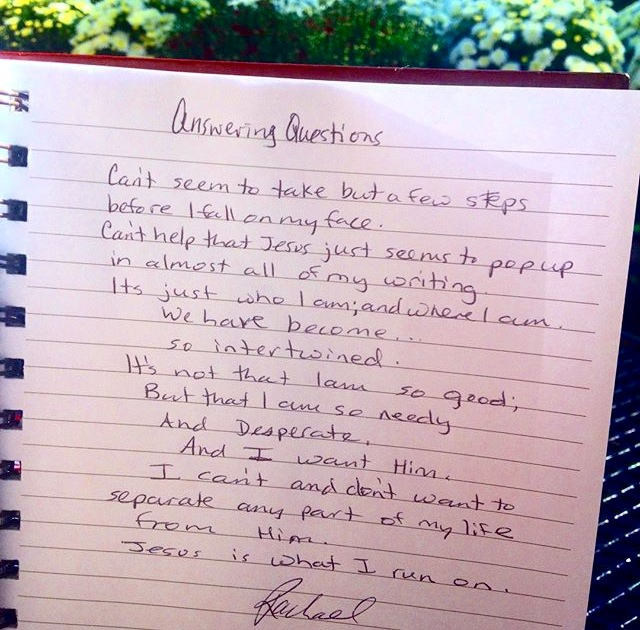 Answering Questions
Can't seem to take but a few steps
before I fall on my face.
Can't help that Jesus just seems to pop up
in almost all of my writing.
Its just who I am; and where I am.
We have become...
so intertwined.
It's not that I am so good;
But that I am so needy
And Desperate.
And I want Him.
I can't and don't want to
separate any part of my life
from Him.
Jesus is what I run on.
Rachael